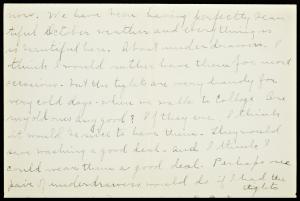 now. We have been having perfectly beau-
tiful October weather and everything is
so beautiful here. About underdrawers. I
think I would rather have them for most
occasions, but the tights are very handy for
very cold days when we walk to College. Are
my old ones any good? If they are, I think
it would be nice to have them. They would
save washing a good deal. and I think I
could wear them a good deal. Perhaps one
pair of underdrawers would do if I had the
tights